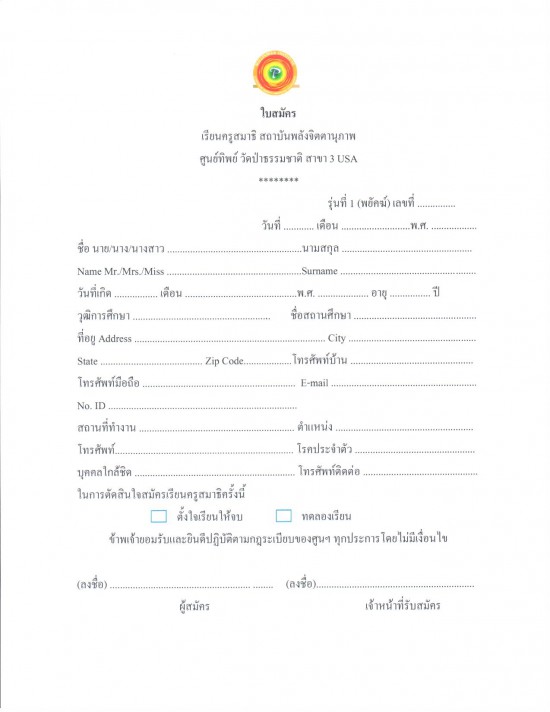 ใบสมัคร
เรียนครูสมาธิ สถาบันพลังจิตตานุภาพ
ศูนย์ทิพย์ วัดป่าธรรมชาติ สาขา 3 USA
********
รุ่นที่ 1 (พยัคฆ์) เลขที่ ...............
วันที่ ............ เดือน ...........................พ.ศ. ..................
ชื่อ นาย/นาง/นางสาว .....................................................นามสกุล ....................................................
Name Mr./Mrs./Miss .....................................................Surname .....................................................
วันที่เกิด ................. เดือน ............................................พ.ศ. .................... อายุ ................ ปี
วุฒิการศึกษา ...................................................... ชื่อสถานศึกษา ................................................
ที่อยู่ Address ........................................................................... City ..................................................
State ........................................ Zip Code...................โทรศัพท์บ้าน .................................................
โทรศัพท์มือถือ ............................................................ E-mail .........................................................
No. ID ..........................................................................
สถานที่ทำงาน ............................................................. ตำแหน่ง .......................................................
โทรศัพท์...................................................................... โรคประจำตัว ................................................
บุคคลใกล้ชิด ............................................................... โทรศัพท์ติดต่อ .............................................
ในการตัดสินใจสมัครเรียนครูสมาธิครั้งนี้
ตั้งใจเรียนให้จบ ทดลองเรียน
ข้าพเจ้ายอมรับและยินดีปฏิบัติตามกฎระเบียบของศูนฯ ทุกประการโดยไม่มีเงื่อนไข
(ลงชื่อ) ....................................................... ........ (ลงชื่อ)..............................................................
ผู้สมัคร เจ้าหน้าที่รับสมัคร